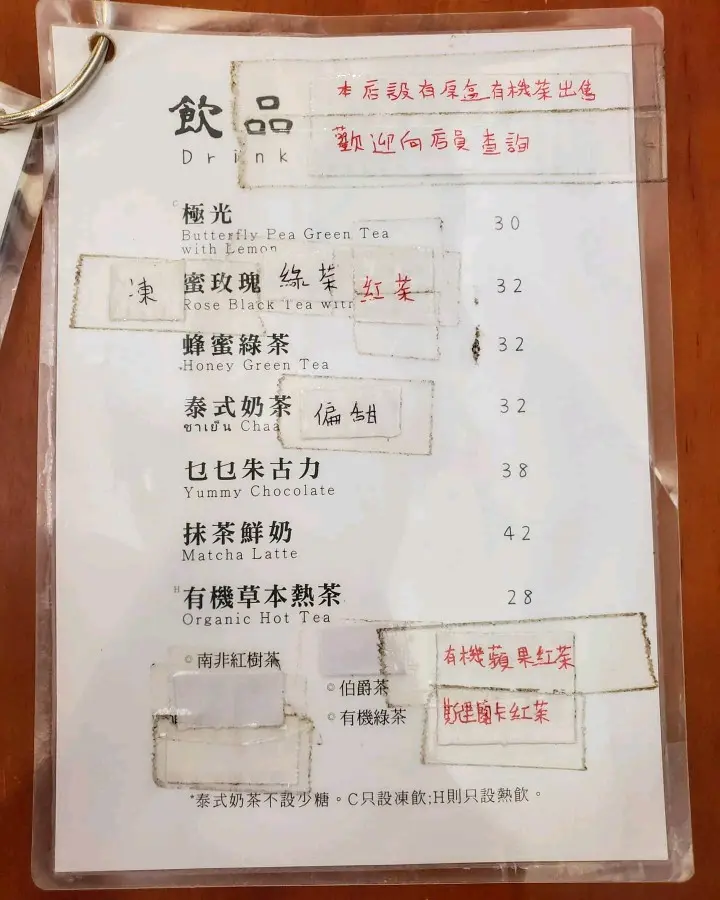 本店設有原盒有機茶出售
歡迎向店員查詢
飲品
Drink
C 極光 30
Butterfly Pea Green Tea
with Lemon
凍 蜜玫瑰 綠茶 紅茶 32
Rose Black Tea with
蜂蜜綠茶 32
Honey Green Tea
泰式奶茶 偏甜 32
ชาเย็น Chaa
乜乜朱古力 38
Yummy Chocolate
抹茶鮮奶 42
Matcha Latte
H 有機草本熱茶 28
Organic Hot Tea
南非紅樹茶 有機蘋果紅茶
伯爵茶
有機綠茶 斯里蘭卡紅茶
*泰式奶茶不設少糖。C只設凍飲;H則只設熱飲。